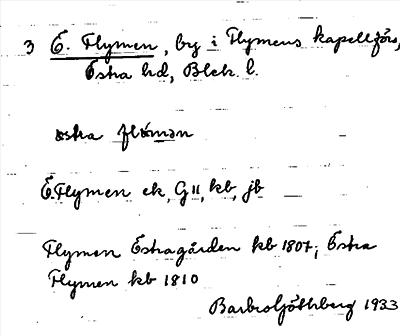 3 Ö. Flymen, by i Flymens kapellförs,
Östra hd, Blek. l.
östra flýmən
Ö.Flymen ek, G11, kb, jb
Flymen Östragården kb 1807; Östra
Flymen kb 1810
Barbro Göthberg 1933